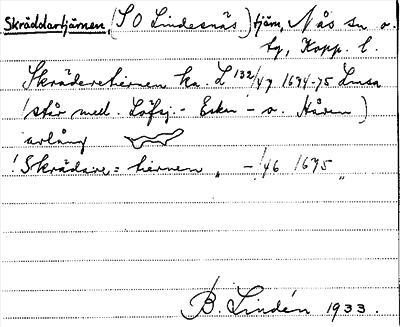 Skräddartjärnen, (S O Lindesnäs) tjärn, Nås sn o.
hg, Kopp. l.
Skrädaretiernen ka. L 132/47 1674-75 Lusa
(står med. Löfsj:- Esken - o. Håren)
avlång
! Skrädare = tiernen „ - 1/46 1675 „
B. Lindén 1933.